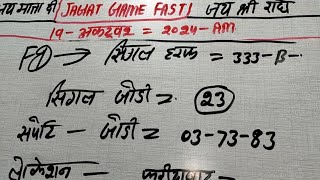 जय माता दी JAGAT GAME FAST जय श्री राधे
19-अक्टूबर = 2024-AM
FD → सिंगल हरफ = 333-B-
सिंगल जोडी = 23
सपोट - जोडी = 03-73-83
लोकेशन - फरीदाबाद -